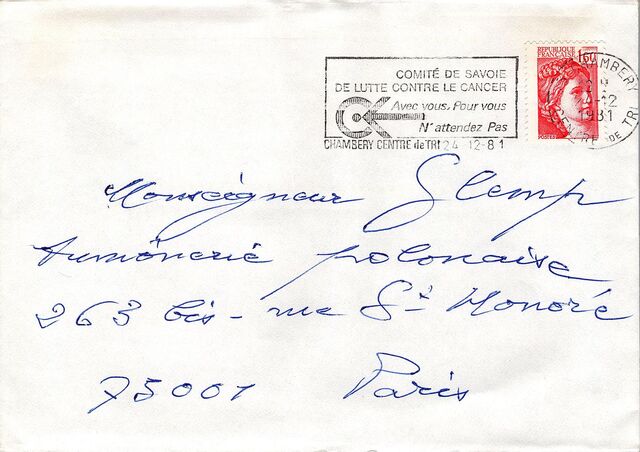 COMITÉ DE SAVOIE
DE LUTTE CONTRE LE CANCER
Avec vous, Pour vous
N'attendez Pas
CHAMBERY CENTRE de TRI 24 12-81
REPUBLIQUE
FRANÇAISE 1,60
POSTES
CHAMBERY
-12
1981
CENTRE DE TRI
Monseigneur Glemp
Aumônerie polonaise
263 bis - rue St Honoré
75001 Paris